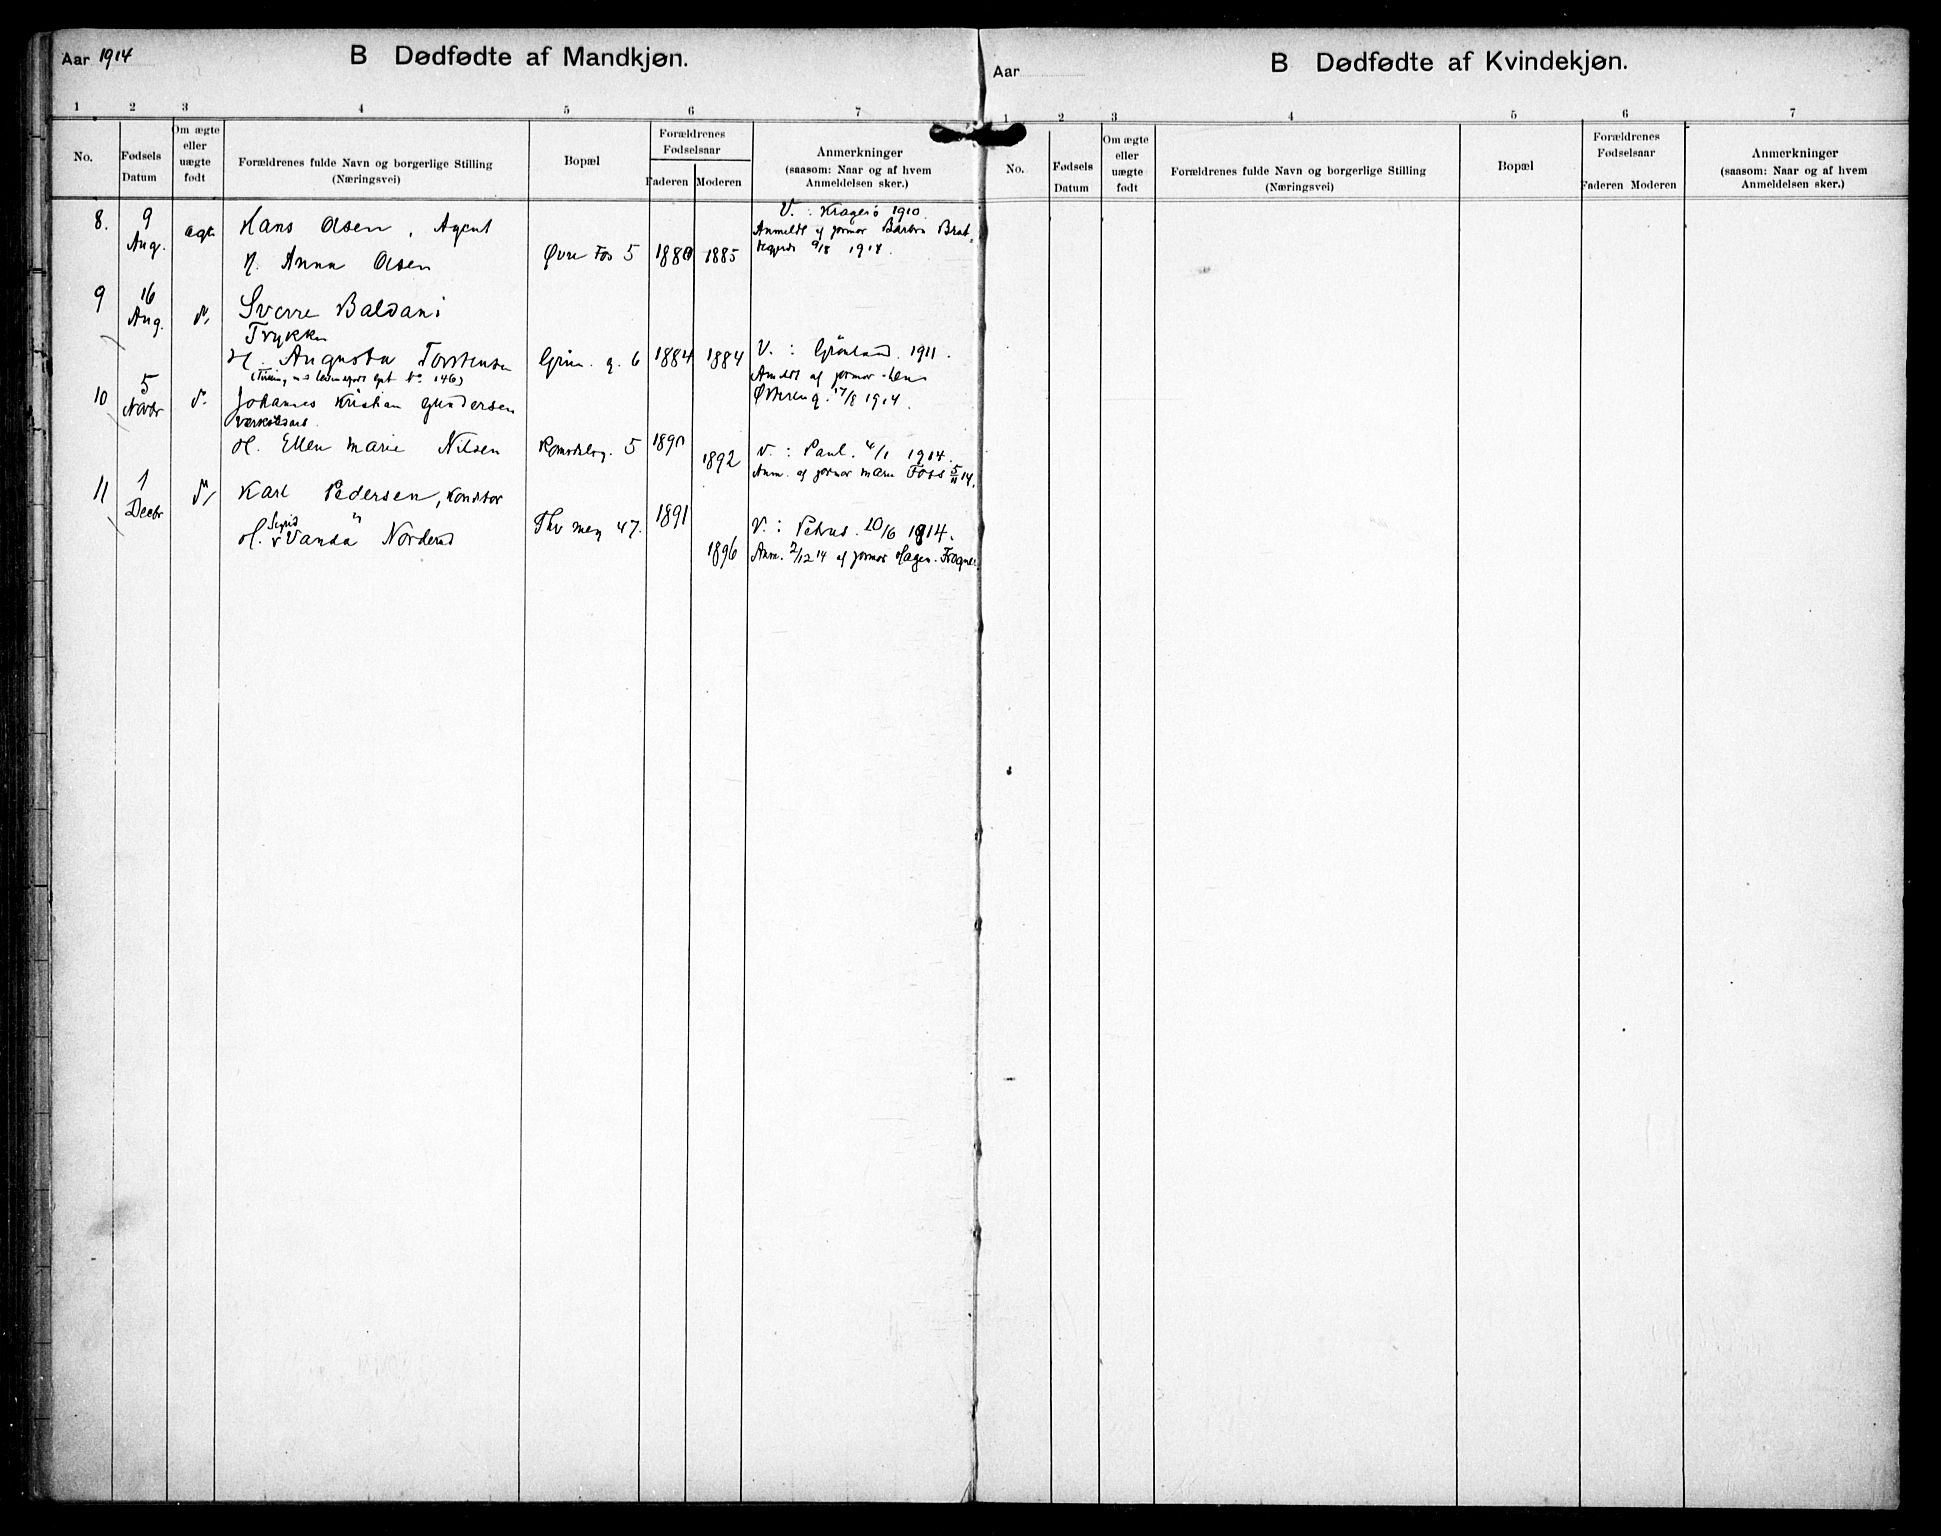 Aar 1914
B Dødfødte af Mandkjøn.
1 2 3 4 5 6 7
No.
Fødsels Datum
Om ægte eller uægte født
Forældrenes fulde Navn og borgerlige Stilling
(Næringsvei)
Bopæl
Forældrenes Fødselsaar
Faderen Moderen
Anmerkninger
(saasom: Naar og af hvem
Anmeldelsen sker.)
8. 9 Aug. ægt. Hans Olsen, Agent
H. Anna Olsen
Øvre Fos 5 1880 1885
V. : Kragerø 1910.
Anmeldt af jormor Barbro Brat-
9/8 1914.
9 16 Aug. d.
Sverre Baldani
Trykker
H. Augusta Torstensen
Grün. g. 6 1884 1884
V. : Grönland. 1911.
Anmeldt af jormor
Østereng. 17/8 1914.
10 5 Novbr d.
Johannes Kristian Gundersen
H. Ellen Marie Nilsen
Romsdalsg. 5 1890 1892
V. : Paul. 4/1 1914.
Anm. af jormor Marie Foss 5/11 14.
11 1 Decbr d.
Karl Pedersen, Konditor
H. Sigrid Vanda Norderud
Thv Meg 47. 1891 1896
V. : Petrus. 10/6 1914.
Anm. 2/12 14 af jormor Hagen. Frogner
Aar
B Dødfødte af Kvindekjøn.
1 2 3 4 5 6 7
No.
Fødsels Datum
Om ægte eller uægte født
Forældrenes fulde Navn og borgerlige Stilling
(Næringsvei)
Bopæl
Forældrenes Fødselsaar
Faderen Moderen
Anmerkninger
(saasom: Naar og af hvem
Anmeldelsen sker.)